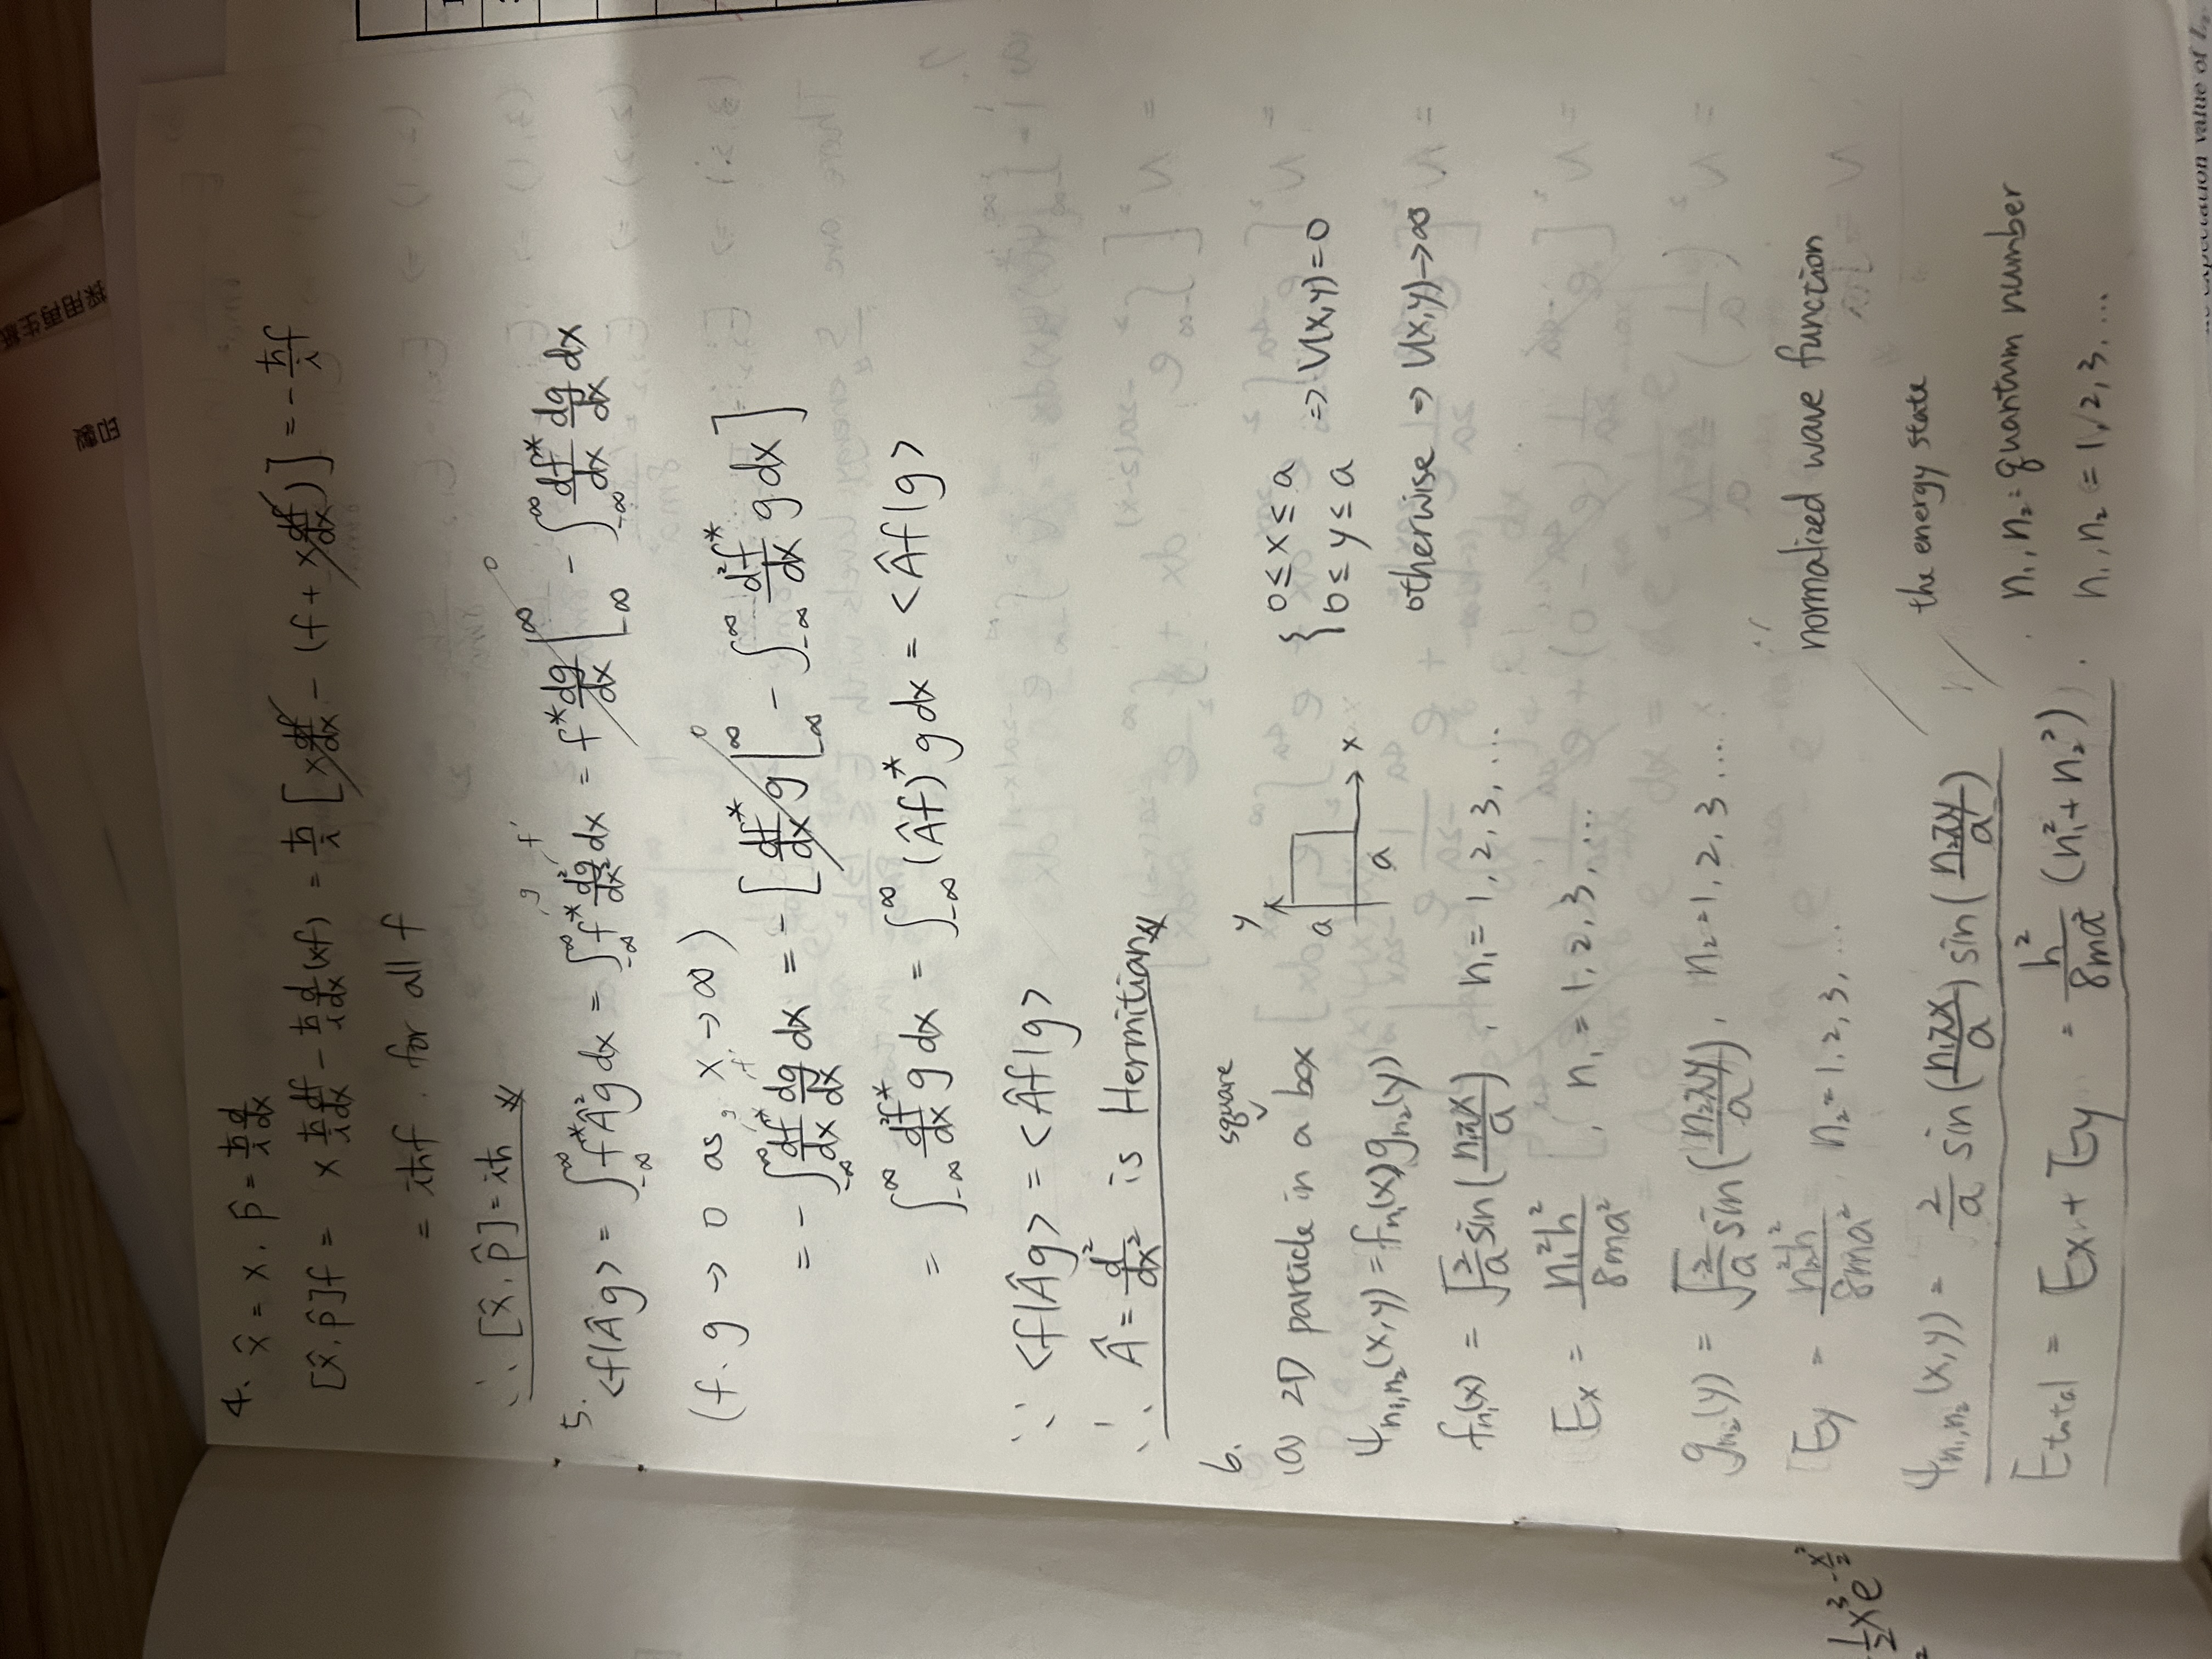 採用再生紙
印製
4. x̂ = x, p̂ = ħ/i d/dx
[x̂, p̂]f = x ħ/i df/dx - ħ/i d/dx (xf) = ħ/i [x df/dx - (f + x df/dx)] = - ħ/i f
= iħf, for all f
∴ [x̂, p̂] = iħ
g f'
5. <f|Âg> = ∫_{-∞}^{∞} f*Â²g dx = ∫_{-∞}^{∞} f* d²g/dx² dx = f* dg/dx |_{-∞}^{∞} 0 - ∫_{-∞}^{∞} df*/dx dg/dx dx
(f, g → 0 as, x → ∞)
g f'
= - ∫_{-∞}^{∞} df*/dx dg/dx dx = - [df*/dx g |_{-∞}^{∞} 0 - ∫_{-∞}^{∞} d²f*/dx g dx]
= ∫_{-∞}^{∞} d²f*/dx g dx = ∫_{-∞}^{∞} (Âf)* g dx = <Âf|g>
∵ <f|Âg> = <Âf|g>
∴ Â = d²/dx² is Hermitian
6.
(a) 2D particle in a square box
y
a
x
a
{ 0 ≤ x ≤ a
0 ≤ y ≤ a ⇒ V(x,y) = 0
otherwise ⇒ V(x,y) → ∞
ψ_{n₁,n₂}(x,y) = f_{n₁}(x) g_{n₂}(y)
f_{n₁}(x) = √(2/a) sin(n₁πx/a), n₁ = 1, 2, 3, ...
Ex = n₁²h²/8ma², n₁ = 1, 2, 3, ...
g_{n₂}(y) = √(2/a) sin(n₂πy/a), n₂ = 1, 2, 3 ...
Ey = n₂²h²/8ma², n₂ = 1, 2, 3, ...
normalized wave function
ψ_{n₁,n₂}(x,y) = 2/a sin(n₁πx/a) sin(n₂πy/a)
the energy state
Etotal = Ex + Ey = h²/8ma² (n₁² + n₂²).
n₁, n₂ : quantum number
n₁, n₂ = 1, 2, 3, ...
½x³e^{-x²/2}
expectation value of L